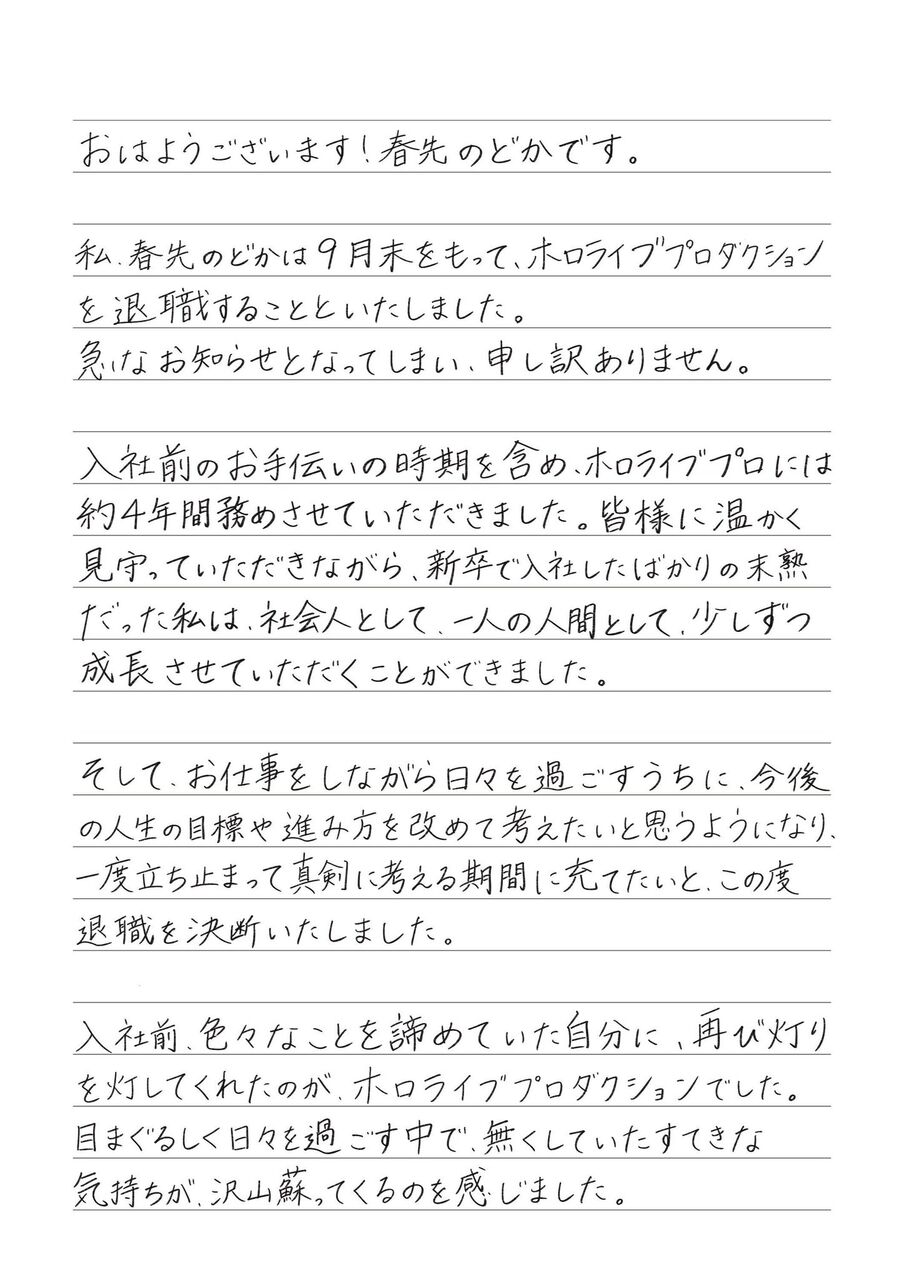 おはようございます！春先のどかです。
私、春先のどかは9月末をもって、ホロライブプロダクション
を退職することといたしました。
急なお知らせとなってしまい、申し訳ありません。
入社前のお手伝いの時期を含め、ホロライブプロには
約4年間務めさせていただきました。皆様に温かく
見守っていただきながら、新卒で入社したばかりの未熟
だった私は、社会人として、一人の人間として、少しずつ
成長させていただくことができました。
そして、お仕事をしながら日々を過ごすうちに、今後
の人生の目標や進み方を改めて考えたいと思うようになり、
一度立ち止まって真剣に考える期間に充てたいと、この度
退職を決断いたしました。
入社前、色々なことを諦めていた自分に、再び灯り
を灯してくれたのが、ホロライブプロダクションでした。
目まぐるしく日々を過ごす中で、無くしていたすてきな
気持ちが、沢山蘇ってくるのを感じました。